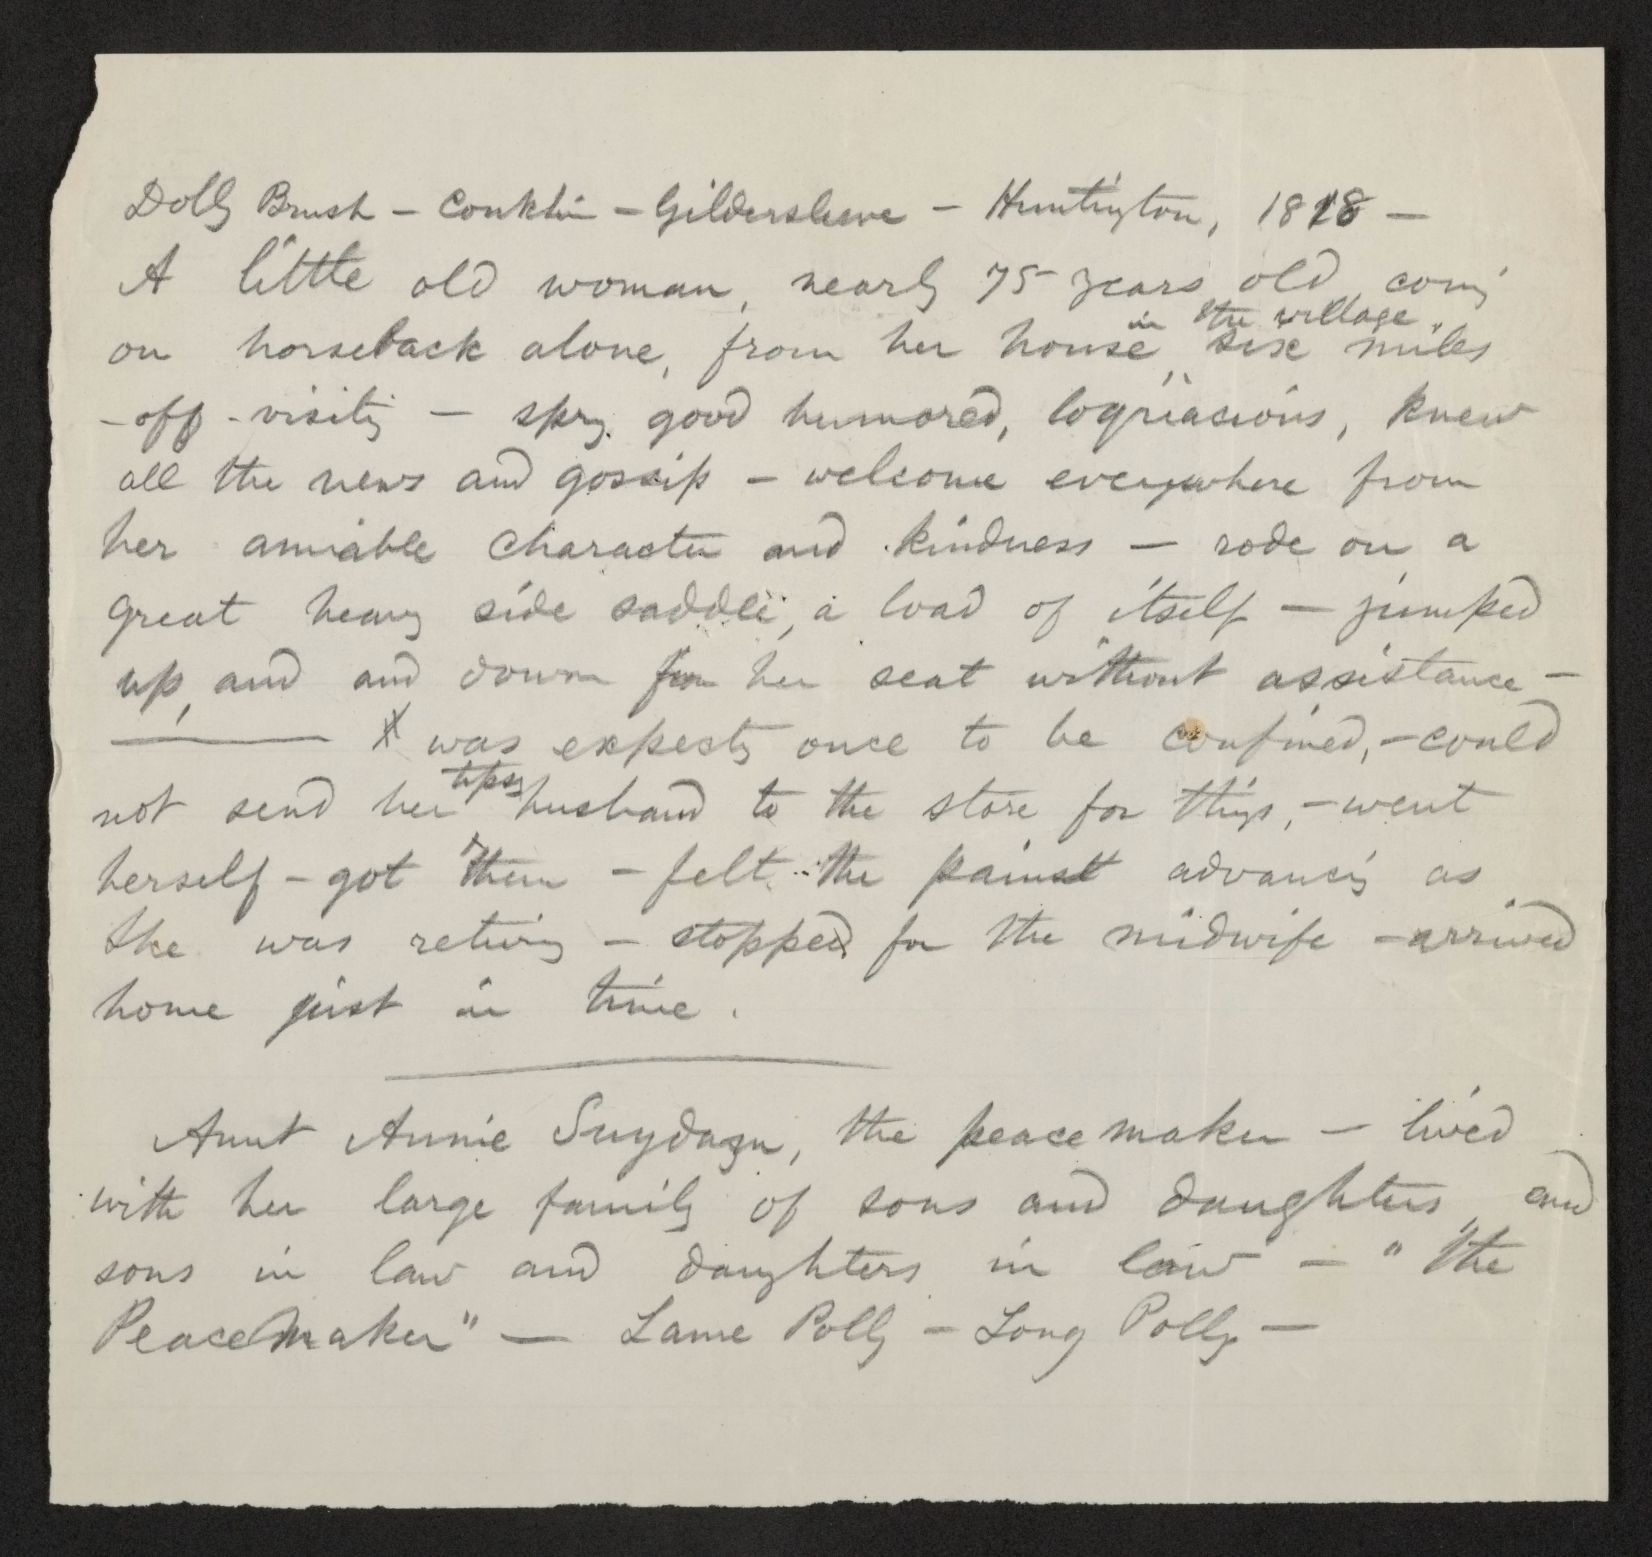 Dolly Brush – Conklin – Gildersleeve – Huntington, 1818 –
A little old woman, nearly 75 years old coming
on horseback alone, from her house in the village, six miles
– off – visiting – spry, good humored, loquacious, knew
all the news and gossip – welcome everywhere from
her amiable character and kindness – rode on a
great heavy side saddle, a load of itself – jumped
up, and and down from her seat without assistance –
——— was expecting once to be confined, – could
not send her tipsy husband to the store for things, – went
herself – got them – felt the pains advancing as
she was retiring – stopped for the midwife – arrived
home just in time.
Aunt Annie Suydam, the peace maker – lived
with her large family of sons and daughters and
sons in law and daughters in law – "the
Peace Maker" – Lame Polly – Long Polly –